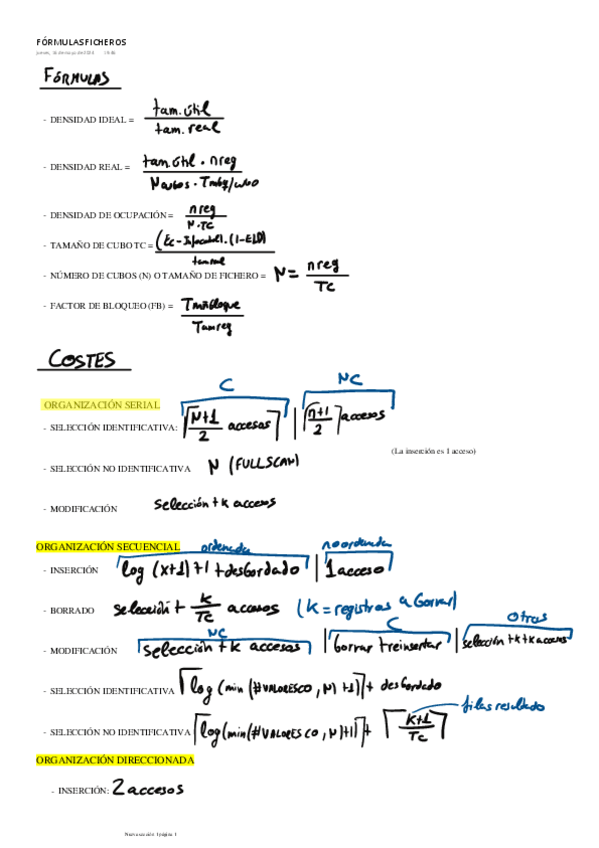 FÓRMULAS FICHEROS
FÓRMULAS
- DENSIDAD IDEAL = tam. útil / tam. real
- DENSIDAD REAL = tam. útil · nreg / Ncubos ·
- DENSIDAD DE OCUPACIÓN = nreg / N·TC
- TAMAÑO DE CUBO TC =
- NÚMERO DE CUBOS (N) O TAMAÑO DE FICHERO = N = nreg / TC
- FACTOR DE BLOQUEO (FB) = Tam bloque / Tam reg
COSTES
C NC
ORGANIZACIÓN SERIAL
- SELECCIÓN IDENTIFICATIVA: ⌈N+1 / 2 accesos⌉ | ⌈n+1 / 2⌉ accesos
(La inserción es 1 acceso)
- SELECCIÓN NO IDENTIFICATIVA N (FULLSCAN)
- MODIFICACIÓN selección + k accesos
ORGANIZACIÓN SECUENCIAL ordenada no ordenada
- INSERCIÓN log (x+1)+1 + desbordado | 1 acceso
- BORRADO selección + k / TC accesos (K = registros a borrar)
NC C otras
- MODIFICACIÓN selección + k accesos | borrar + reinsertar | selección + k + k accesos
- SELECCIÓN IDENTIFICATIVA ⌈log (min (#VALORES CO, N) +1)⌉ + desbordado
filas resultado
- SELECCIÓN NO IDENTIFICATIVA ⌈log (min (#VALORES CO, N)+1)⌉ + ⌈k+1 / TC⌉
ORGANIZACIÓN DIRECCIONADA
- INSERCIÓN: 2 accesos
Nueva sección 1 página 1